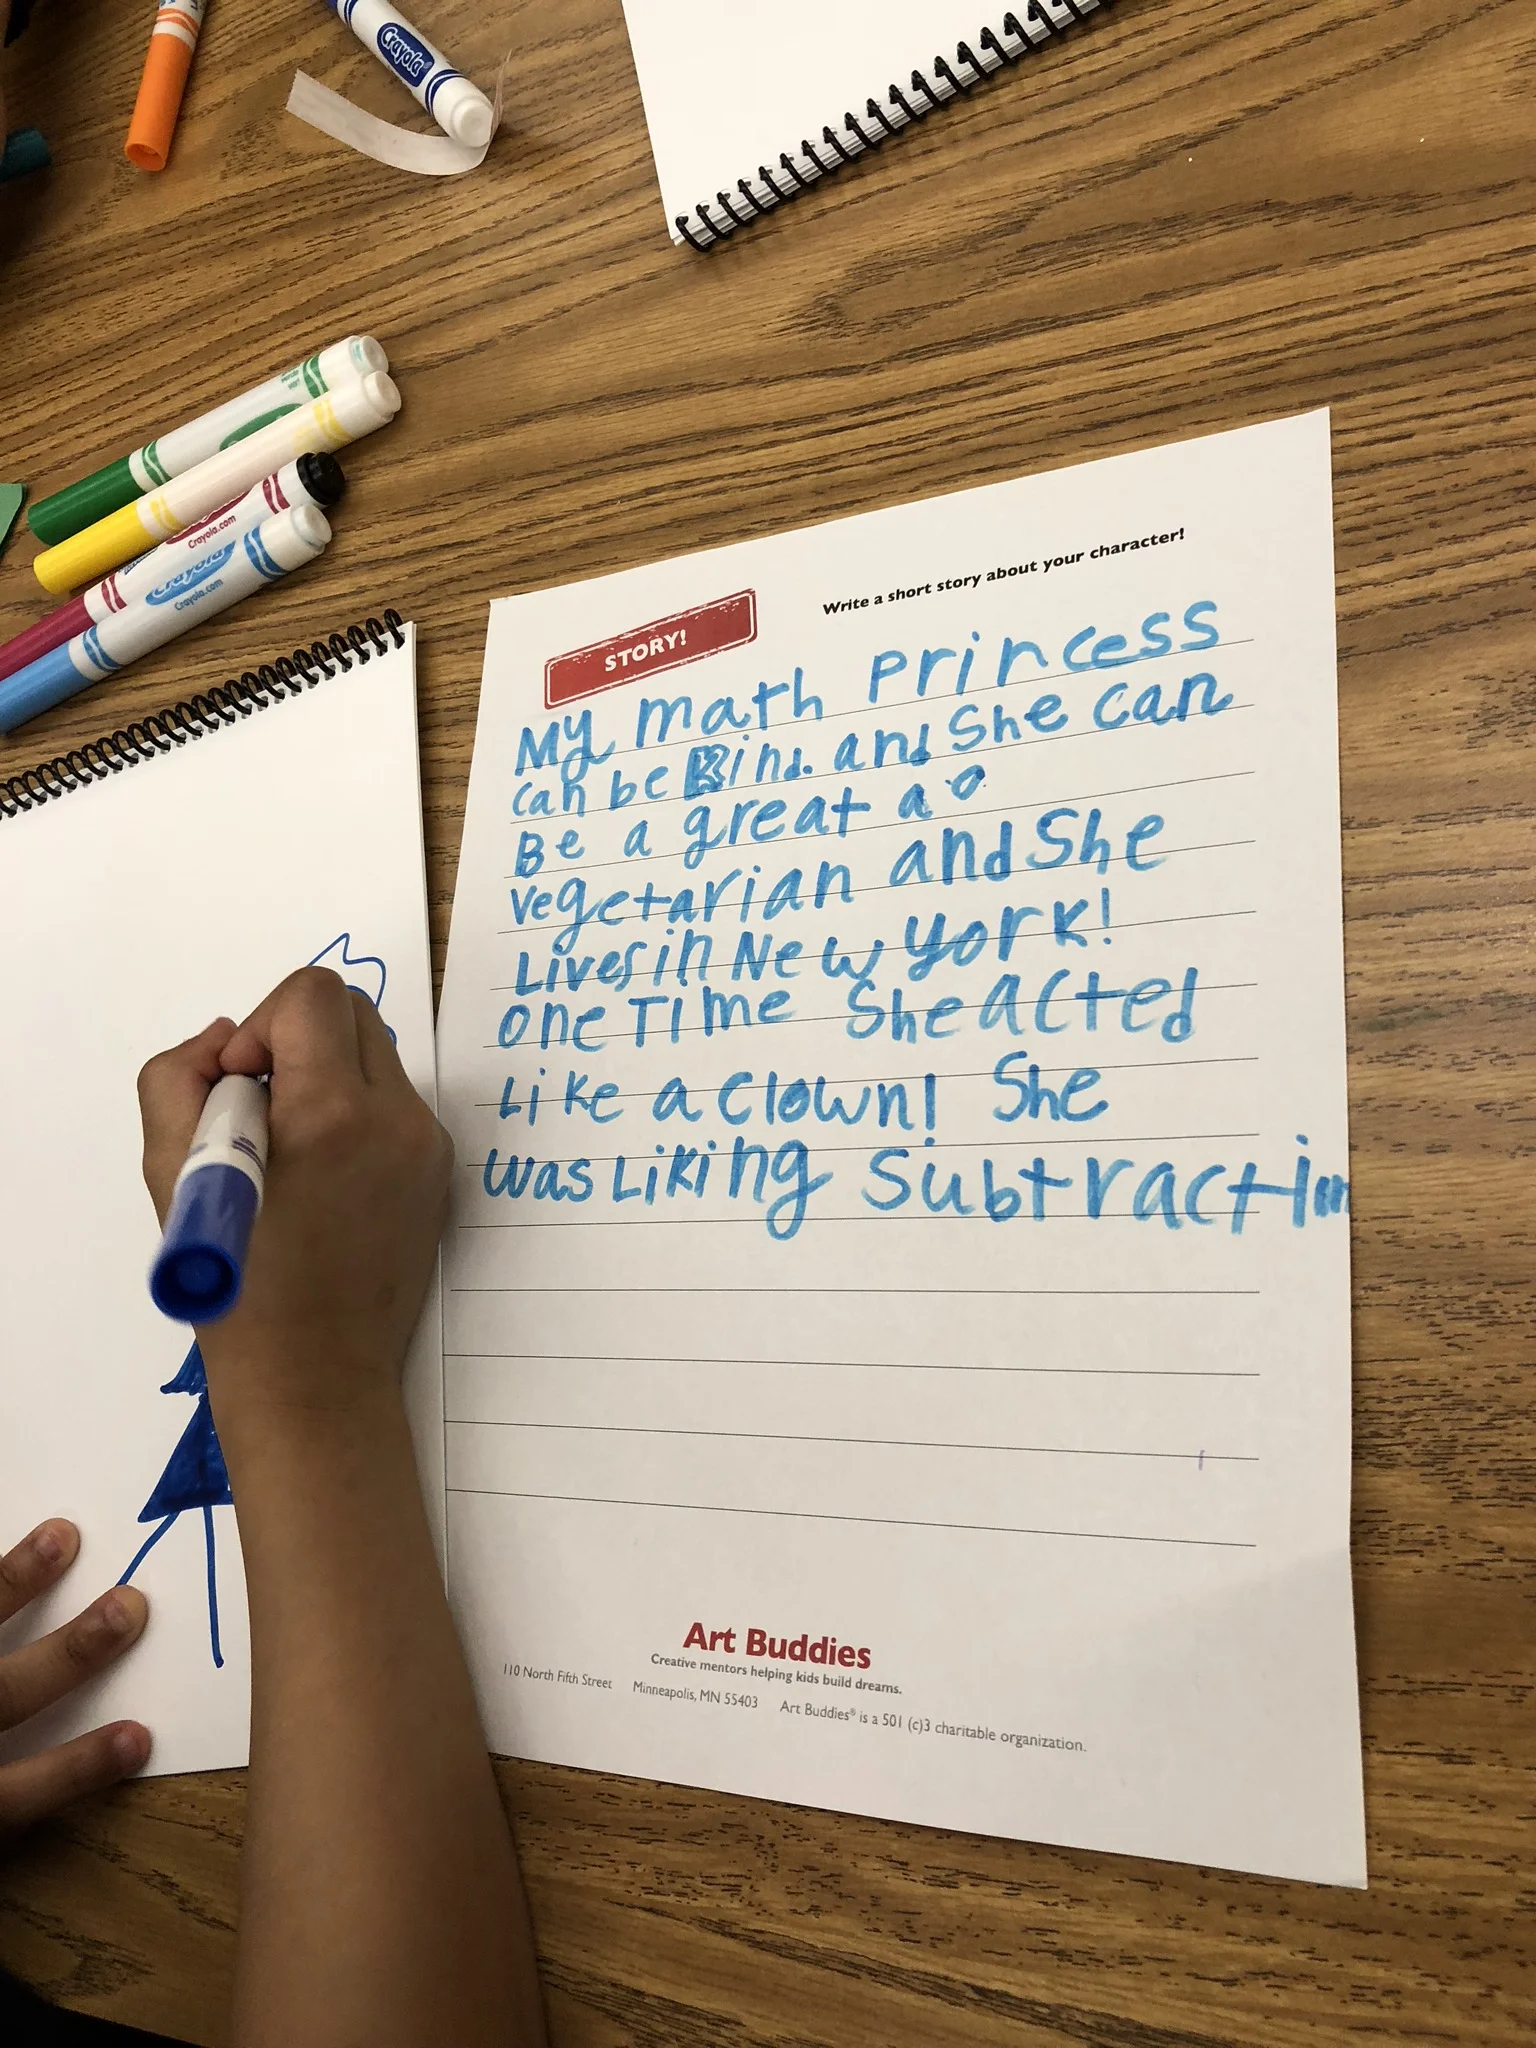 Crayola
Crayola.com
Crayola
Crayola.com
Write a short story about your character!
STORY!
My math princess
can be kind. and She can
Be a great a o
vegetarian and She
Lives in New York!
one Time She acted
Like a clown! She
was Liking Subtractin
Art Buddies
Creative mentors helping kids build dreams.
110 North Fifth Street Minneapolis, MN 55403 Art Buddies® is a 501 (c)3 charitable organization.